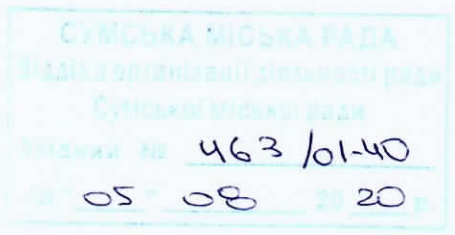 СУМСЬКА МІСЬКА РАДА
Відділ з організації діяльності ради
Сумської міської ради
№ 463/01-40
"05" 08 2020 р.